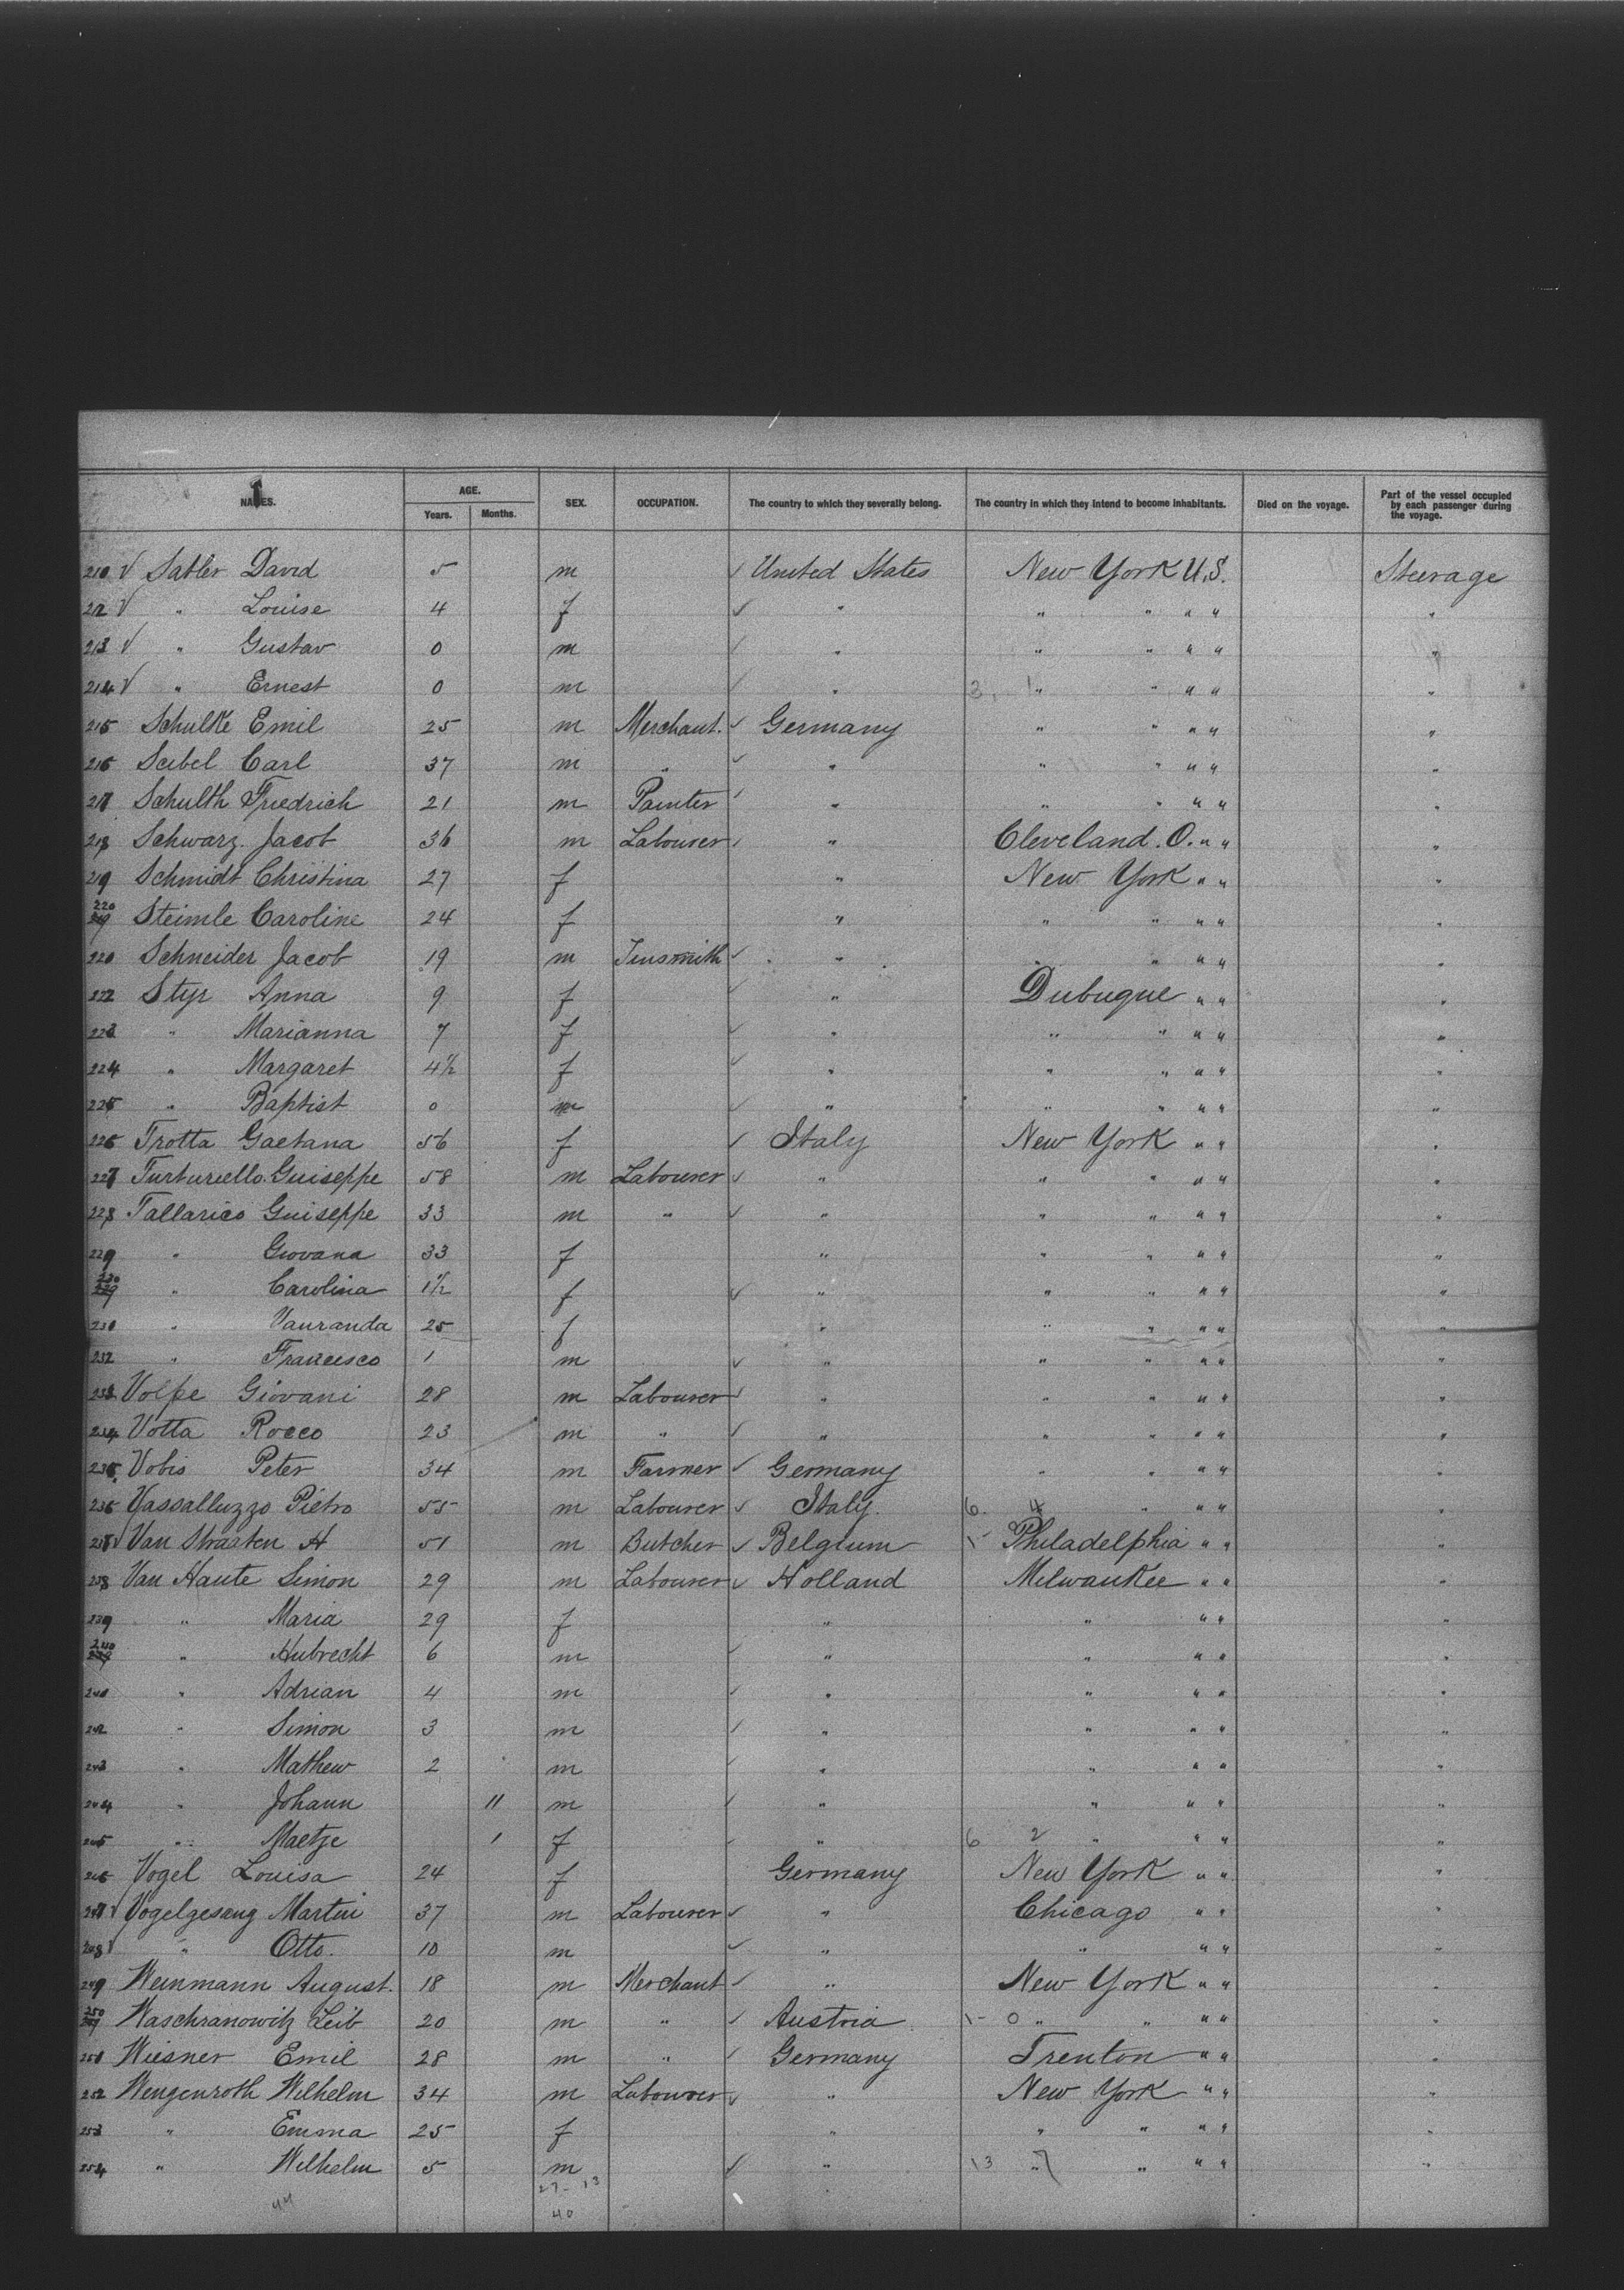 NAMES. AGE. Years. Months. SEX. OCCUPATION. The country to which they severally belong. The country in which they intend to become inhabitants. Died on the voyage. Part of the vessel occupied by each passenger during the voyage.
210 √ Sabler David 5 m √ United States New York U.S. Steerage
212 √ " Louise 4 f √ " " " " " "
213 √ " Gustav 0 m √ " " " " " "
214 √ " Ernest 0 m √ " 3. 1 " " " " "
215 Schulke Emil 25 m Merchant. √ Germany " " " " "
216 Seibel Carl 37 m " √ " " " " " "
217 Schulth Friedrich 21 m Painter √ " " " " " "
218 Schwarz. Jacob 36 m Labourer √ " Cleveland. O. " " "
219 Schmidt Christina 27 f " New York " " "
220 Steimle Caroline 24 f " " " " " "
220 Schneider Jacob 19 m Tinsmith √ " " " " " "
222 Styr Anna 9 f √ " Dubuque " " "
223 " Marianna 7 f √ " " " " " "
224 " Margaret 4½ f √ " " " " " "
225 " Baptist 0 m √ " " " " " "
226 Trotta Gaetana 56 f √ Italy New York " " "
227 Turturiello. Guiseppe 58 m Labourer √ " " " " " "
228 Tallarico Guiseppe 33 m " √ " " " " " "
229 " Giovana 33 f " " " " " "
230 " Carolina 1½ f √ " " " " " "
230 " Vauranda 25 f " " " " " "
232 " Francesco 1 m √ " " " " " "
233 Volpe Giovani 28 m Labourer √ " " " " " "
234 Votta Rocco 23 m " √ " " " " " "
235 Vobis Peter 34 m Farmer √ Germany " " " " "
236 Vassalluzzo Pietro 55 m Labourer √ Italy. 6. 4 " " " "
237 √ Van Straaten A 51 m Butcher √ Belgium 1- 0 Philadelphia " " "
238 Van Haute Simon 29 m Labourer √ Holland Milwaukee " " "
239 " Maria 29 f " " " " "
240 " Hubrecht 6 m √ " " " " "
240 " Adrian 4 m √ " " " " "
242 " Simon 3 m √ " " " " "
243 " Mathew 2 m √ " " " " "
244 " Johann 11 m √ " " " " "
245 " Maetje 1 f √ " 6 2 " " " "
246 Vogel Louisa 24 f Germany New York " " "
247 √ Vogelgesang Martin 37 m Labourer √ " Chicago " " "
248 √ " Otto. 10 m √ " " " " "
249 Weinmann August. 18 m Merchant √ " New York " " "
250 Waschranowitz Leib 20 m " √ Austria 1- 0 " " " " "
250 Wiesner Emil 28 m " √ Germany Trenton " " "
252 Wengenroth Wilhelm 34 m Labourer √ " New York " " "
253 " Emma 25 f " " " " " "
254 " Wilhelm 5 m √ " 13 7 " " " " "
44 27-13
40